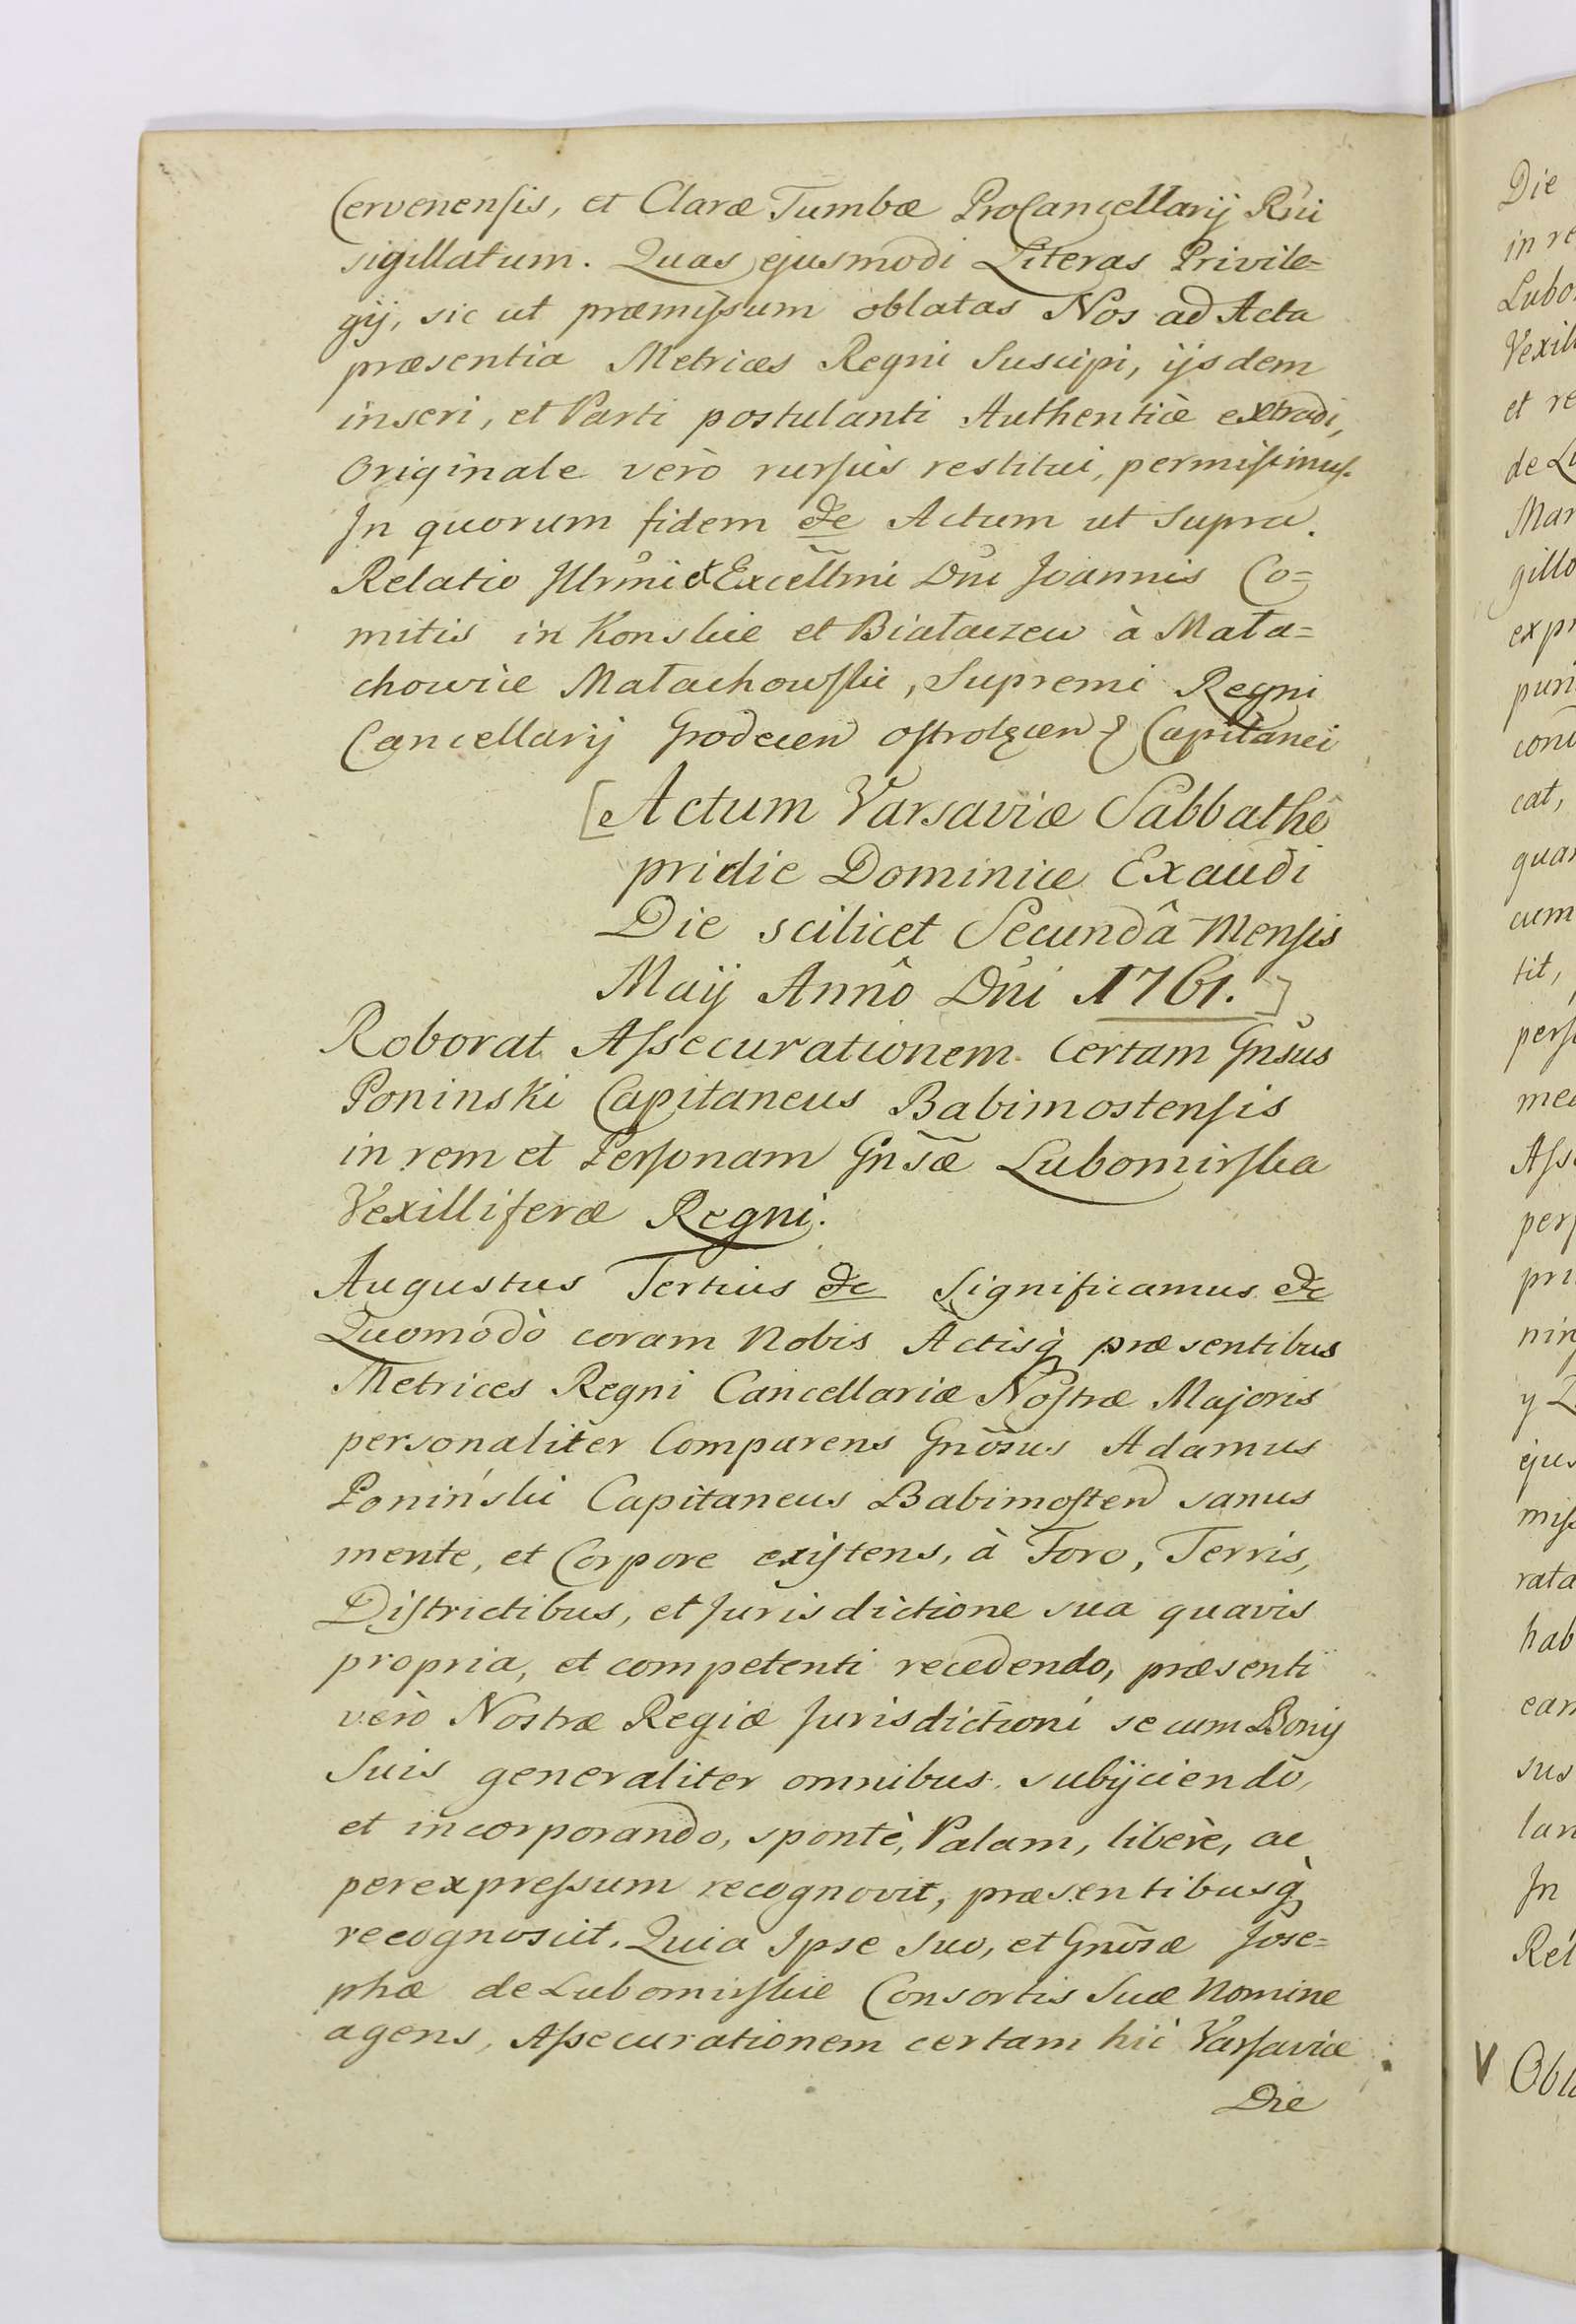 Cervenensis, et Claræ Tumbæ ProCancellarij Rni
sigillatum. Quas ejusmodi Literas Privile=
gij, sic ut præmissum oblatas Nos ad Acta
præsentia Metrices Regni Suscipi, ijsdem
inseri, et Parti postulanti Authenticè extradi,
Originale verò rursùs restitui, permisimus.
In quorum fidem &c Actum ut Supra.
Relatio Illrmi et Excellmi Dni Joannis Co=
mitis in Konskie et Białaczew à Mała=
chowice Małachowski, Supremi Regni
Cancellarij Grodecen Ostrołęcen & Capitanei
[Actum Varsaviæ Sabbathô
pridie Dominicæ Exaudi
Die scilicet Secundâ Mensis
Maij Annô Dni 1761.]
Roborat Assecurationem Certam Gnsus
Poninski Capitaneus Babimostensis
in rem et Personam Gnsæ Lubomirska
Vexilliferæ Regni.
Augustus Tertius &c Significamus &c
Quomodò coram Nobis Actisq præsentibus
Metrices Regni Cancellariæ Nostræ Majoris
personaliter Comparens Gnosus Adamus
Poniński Capitaneus Babimosten sanus
mente, et Corpore existens, à Foro, Terris,
Districtibus, et Jurisdictione sua quavis
propria, et competenti recedendo, præsenti
verò Nostræ Regiæ Jurisdictioni se cum Bonis
Suis generaliter omnibus subijciendo,
et incorporando, spontè, Palam, liberè, ac
per expressum recognovit, præsentibusq
recognoscit. Quia Ipse suo, et Gnosæ Jose=
phæ de Lubomirskie Consortis Suæ Nomine
agens, Assecurationem certam hìc Varsaviæ
Die
Die
in re
Lubo
Vexill
et re
de Lu
Mar
gillo
expr
puri
cond
cat,
quan
cum
tit,
perso
med
Asse
pers
pri
nin
y
ejus
miss
rata
hab
ean
sus
lan
In
Rel
V Obla